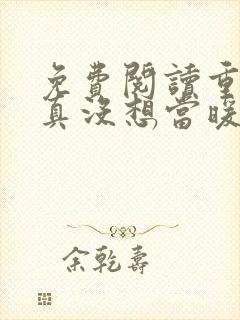 免費閱讀重
真沒想當暖
余乾壽